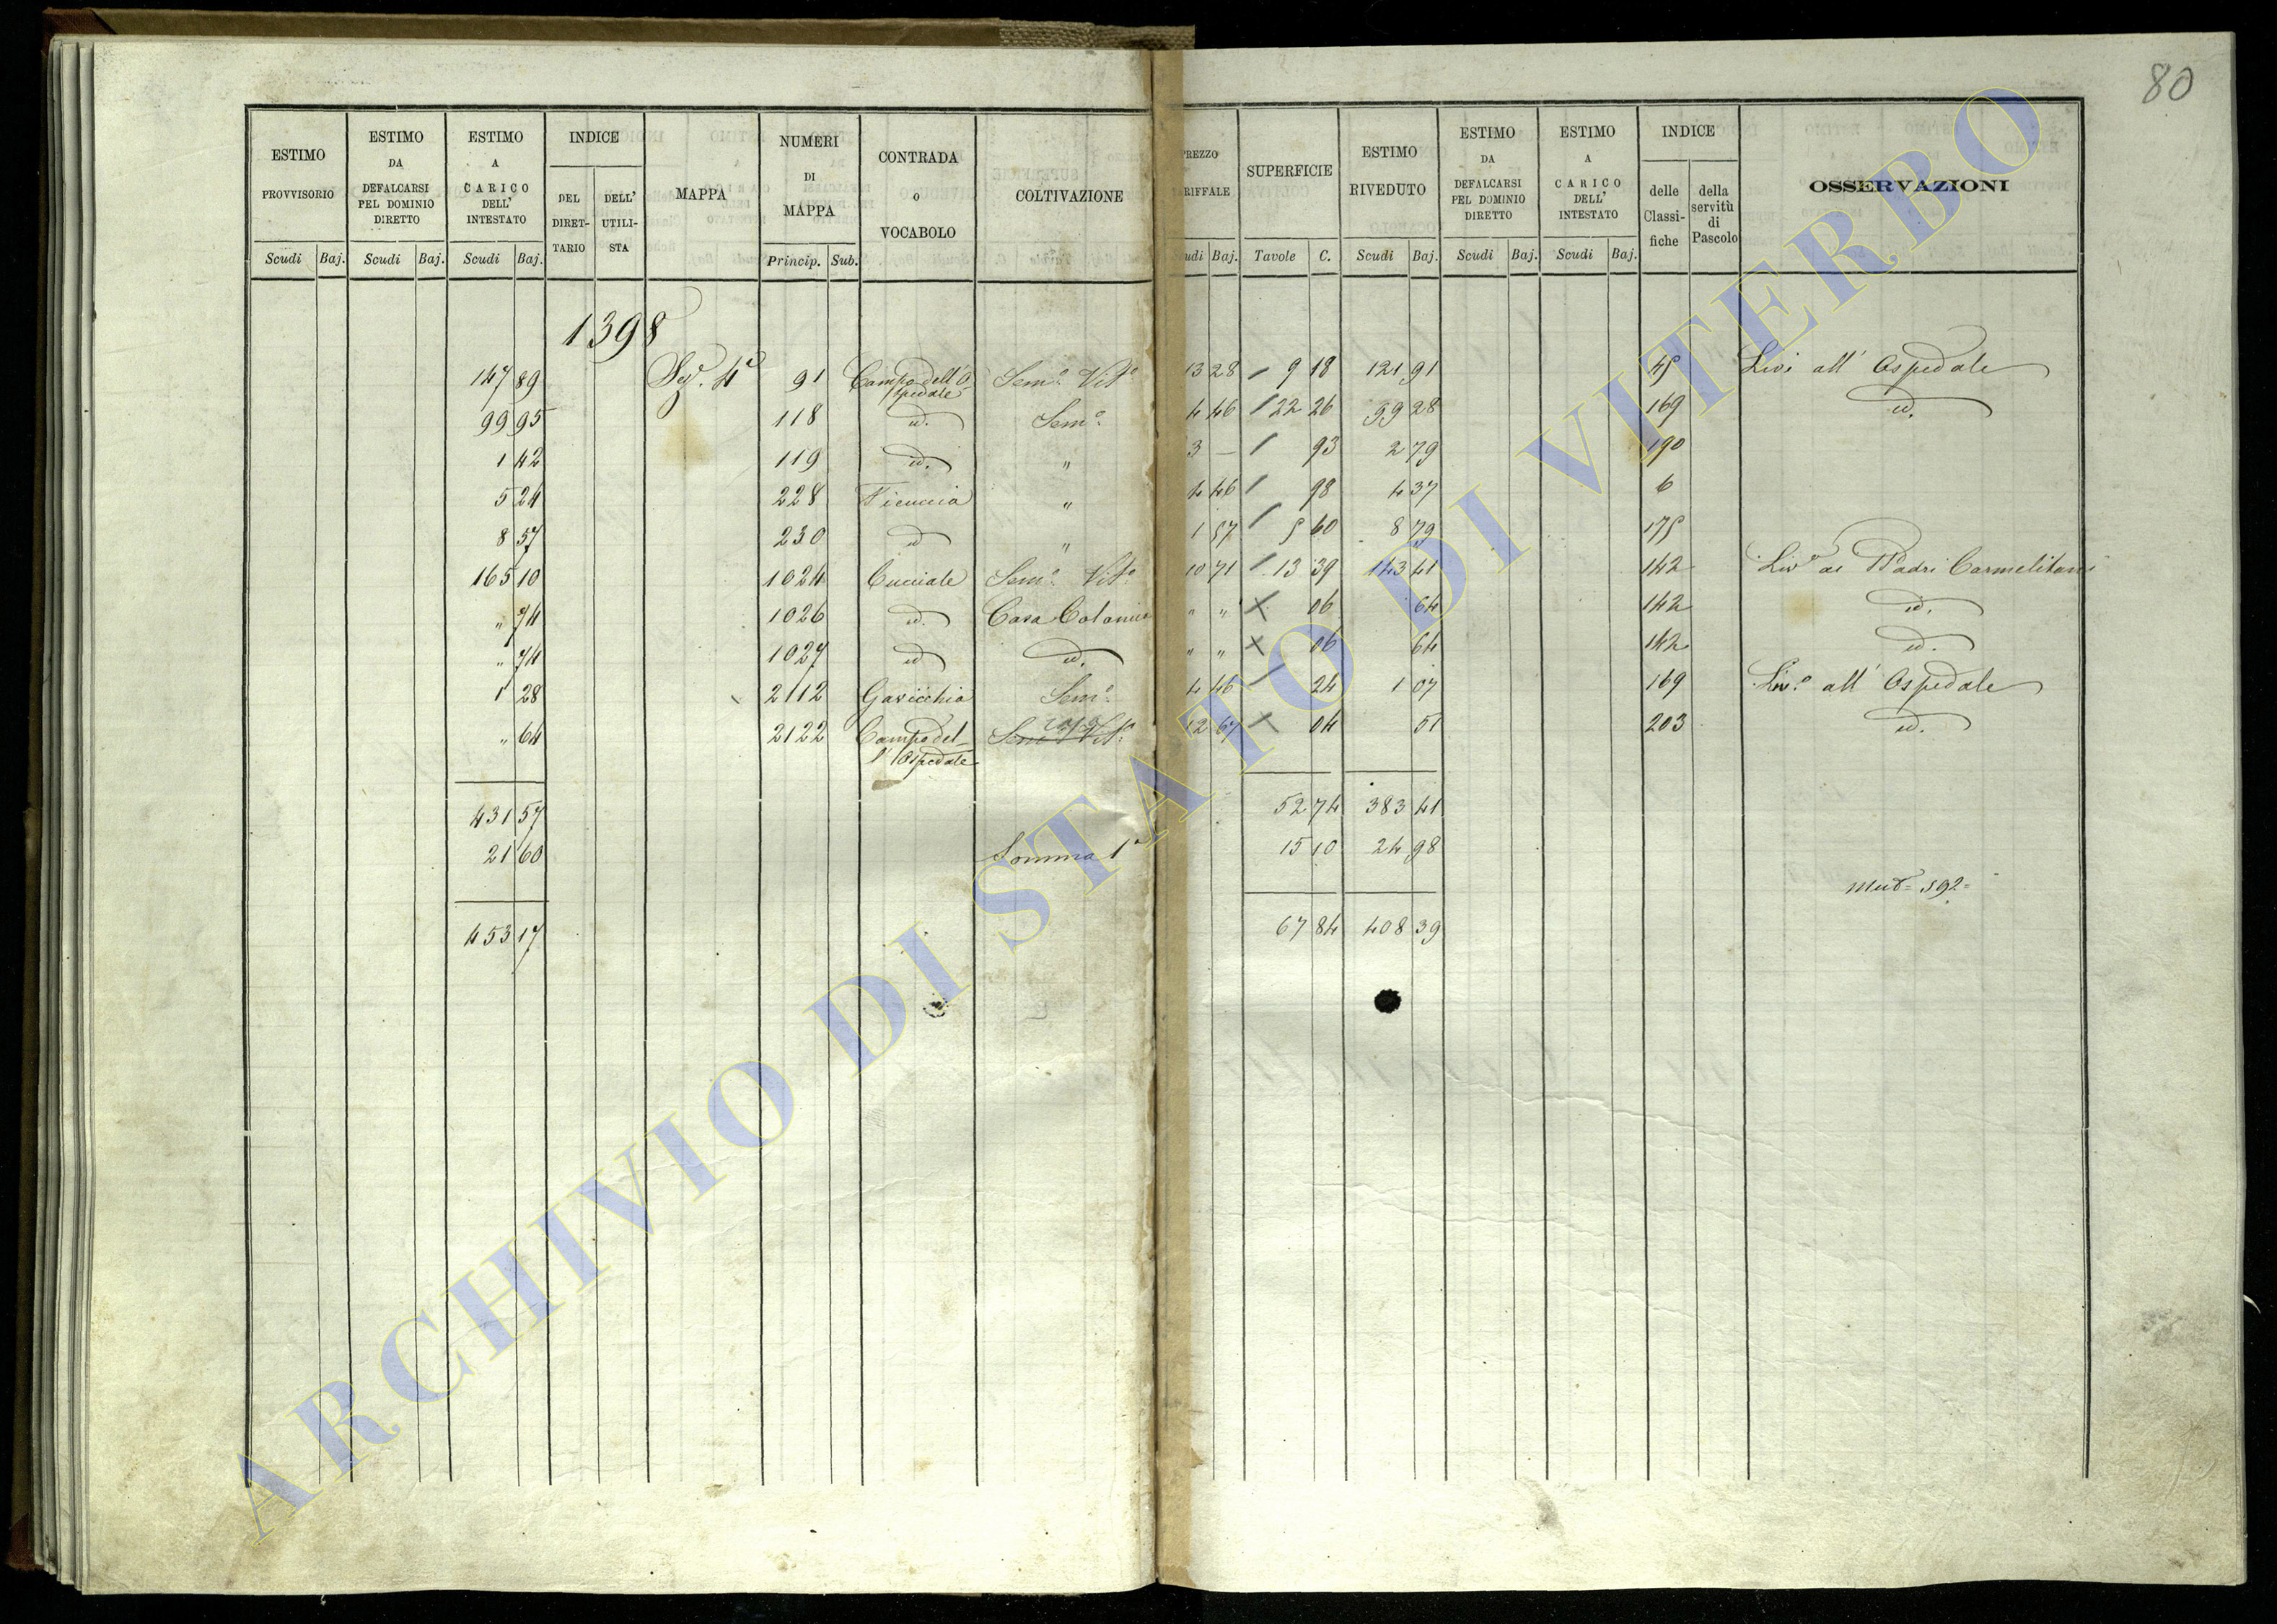 80
ESTIMO PROVVISORIO | ESTIMO DA DEFALCARSI PEL DOMINIO DIRETTO | ESTIMO A CARICO DELL' INTESTATO | INDICE | MAPPA | NUMERI DI MAPPA | CONTRADA o VOCABOLO | COLTIVAZIONE | PREZZO TARIFFALE | SUPERFICIE | ESTIMO RIVEDUTO | ESTIMO DA DEFALCARSI PEL DOMINIO DIRETTO | ESTIMO A CARICO DELL' INTESTATO | INDICE | OSSERVAZIONI
DEL DIRETTARIO | DELL' UTILISTA | delle Classifiche | della servitù di Pascolo
Scudi | Baj. | Scudi | Baj. | Scudi | Baj. | Princip. | Sub. | Scudi | Baj. | Tavole | C. | Scudi | Baj. | Scudi | Baj. | Scudi | Baj.
1398
147 89 | Sez. 4ª | 91 | Campo dell'Ospedale | Semo. Vito. | 13 28 | 9 18 | 121 91 | 45 | Livi all' Ospedale
99 95 | 118 | id. | Semo. | 4 46 | 22 26 | 99 28 | 169 | id.
1 42 | 119 | id. | " | 3 — | 93 | 2 79 | 190
5 24 | 228 | Ficuccia | " | 4 46 | 98 | 4 37 | 6
8 57 | 230 | id | " | 1 57 | 5 60 | 8 79 | 175
165 10 | 1024 | Cucciale | Semo. Vito. | 10 71 | 13 39 | 143 41 | 142 | Livo ai Padri Carmelitani
" 74 | 1026 | id. | Casa Colonica | " " | 06 | 64 | 142 | id.
" 74 | 1027 | id | id. | " " | 06 | 64 | 142 | id.
1 28 | 2112 | Gavicchio | Semo. | 4 46 | 24 | 1 07 | 169 | Livo. all' Ospedale
" 64 | 2122 | Campo dell'Ospedale | Semo Vito. | 12 67 | 04 | 51 | 203 | id.
431 57 | 52 74 | 383 41
21 60 | Somma 1ª | 15 10 | 24 98
Mut= 592=
453 17 | 67 84 | 408 39
ARCHIVIO DI STATO DI VITERBO